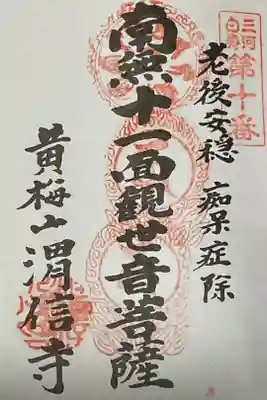 三河
白寿
第十番
老後安穏 痴呆症除
南無十一面観世音菩薩
黄梅山潤信寺